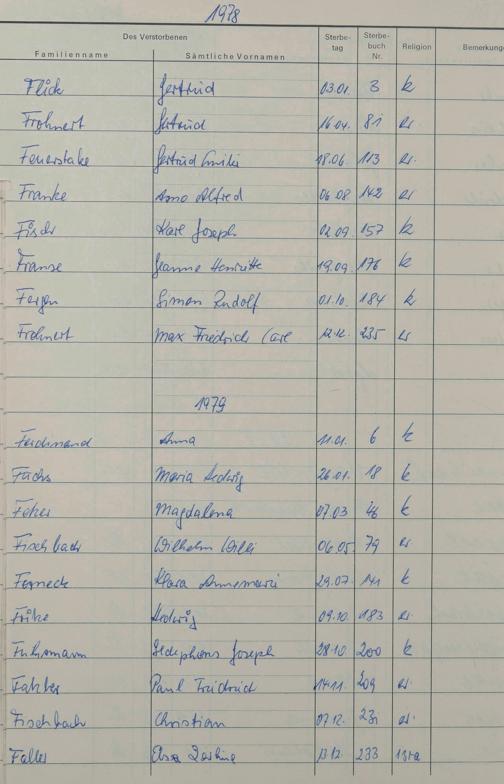 1978
Des Verstorbenen Sterbe- Sterbe- Religion Bemerkung
Familienname Sämtliche Vornamen tag buch Nr.
Flick Gertrud 03.01. 3 k
Frohnert Gertrud 16.04. 81 ev.
Feuerstake Gertrud Emilie 18.06. 113 ev.
Franke Arno Alfred 06.08 142 ev
Fischer Karl Joseph 02.09. 157 k
Franse Jeanne Henriette 19.09. 176 k
Fergen Simon Rudolf 01.10. 184 k
Frohnert Max Friedrich Carl 12.12. 235 ev
1979
Ferdinand Anna 11.01. 6 k
Fuchs Maria Hedwig 26.01. 18 k
Feher Magdalena 07.03 46 k
Fischbach Wilhelm Willi 06.05. 79 ev
Ferneck Klara Annemarie 29.07. 141 k
Frike Hedwig 09.10. 183 ev.
Fuhrmann Ildephons Joseph 28.10 200 k
Paul Friedrich 14.11. 209 ev.
Fischbach Christian 07.12. ev.
Faller Elsa 13.12. 233